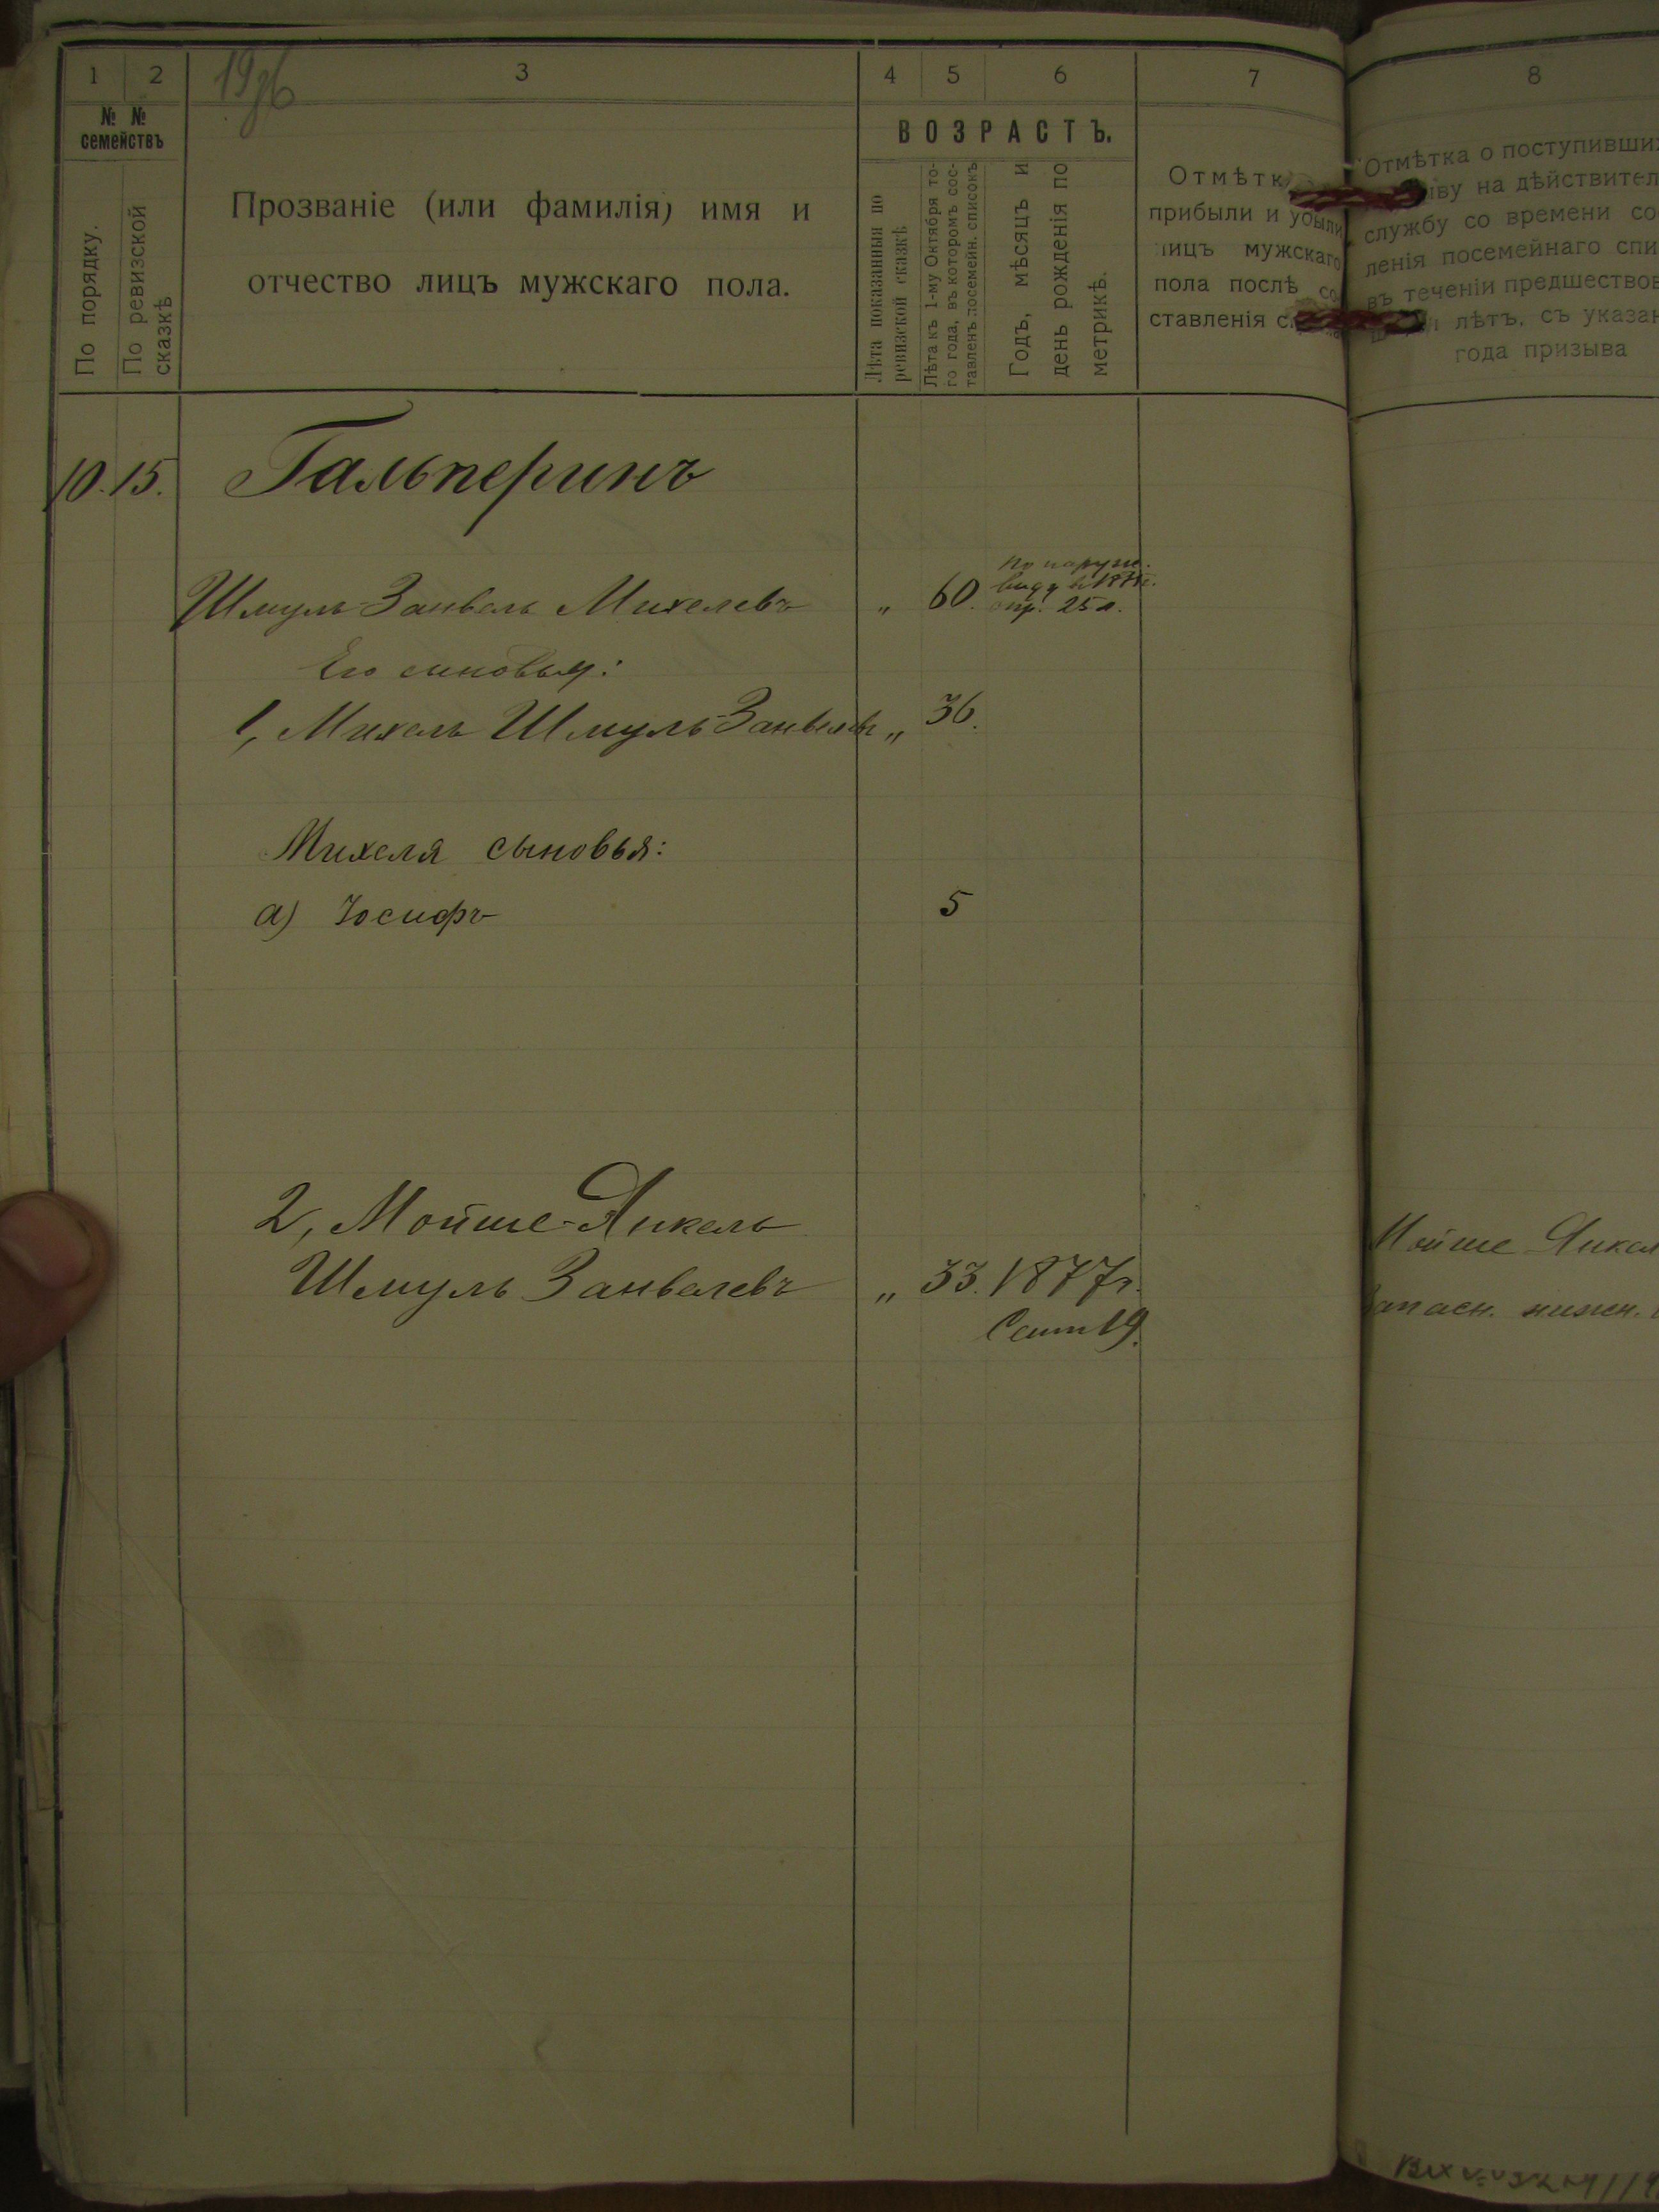 1
2
3
4
5
6
7
8
№ №
семействъ
По порядку.
По ревизской
сказкѣ
Прозваніе (или фамилія) имя и
отчество лицъ мужскаго пола.
ВОЗРАСТЪ.
Лѣта показанныя по
ревизской сказкѣ
Лѣта къ 1-му Октября то-
го года, въ которомъ сос-
тавленъ посемейн. списокъ
Годъ, мѣсяцъ и
день рожденія по
метрикѣ.
Отмѣтк
прибыли и убыли
лицъ мужскаго
пола послѣ со-
ставленія с
Отмѣтка о поступивши
ыву на дѣйствител
службу со времени со
ленія посемейнаго спи
въ теченіи предшество
лѣтъ, съ указан
года призыва
10. 15. Гальперинъ
По наруж.
виду в
Шмуль Занвель Михелевъ „ 60. опр. 25 л.
Его сыновья:
1, Михель Шмуль-Занвелевъ „ 36.
Михеля сыновья:
а) Іосифъ 5
2, Мойше-Янкель
Шмуль Занвелевъ „ 33. 1877 г.
Сент 19.
Мойше Янкел
Запасн. нижн.